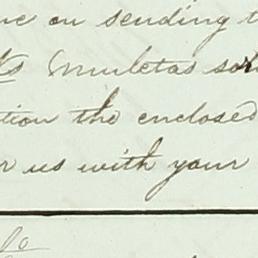 on sending
Muletas
tion the enclosed
us with your